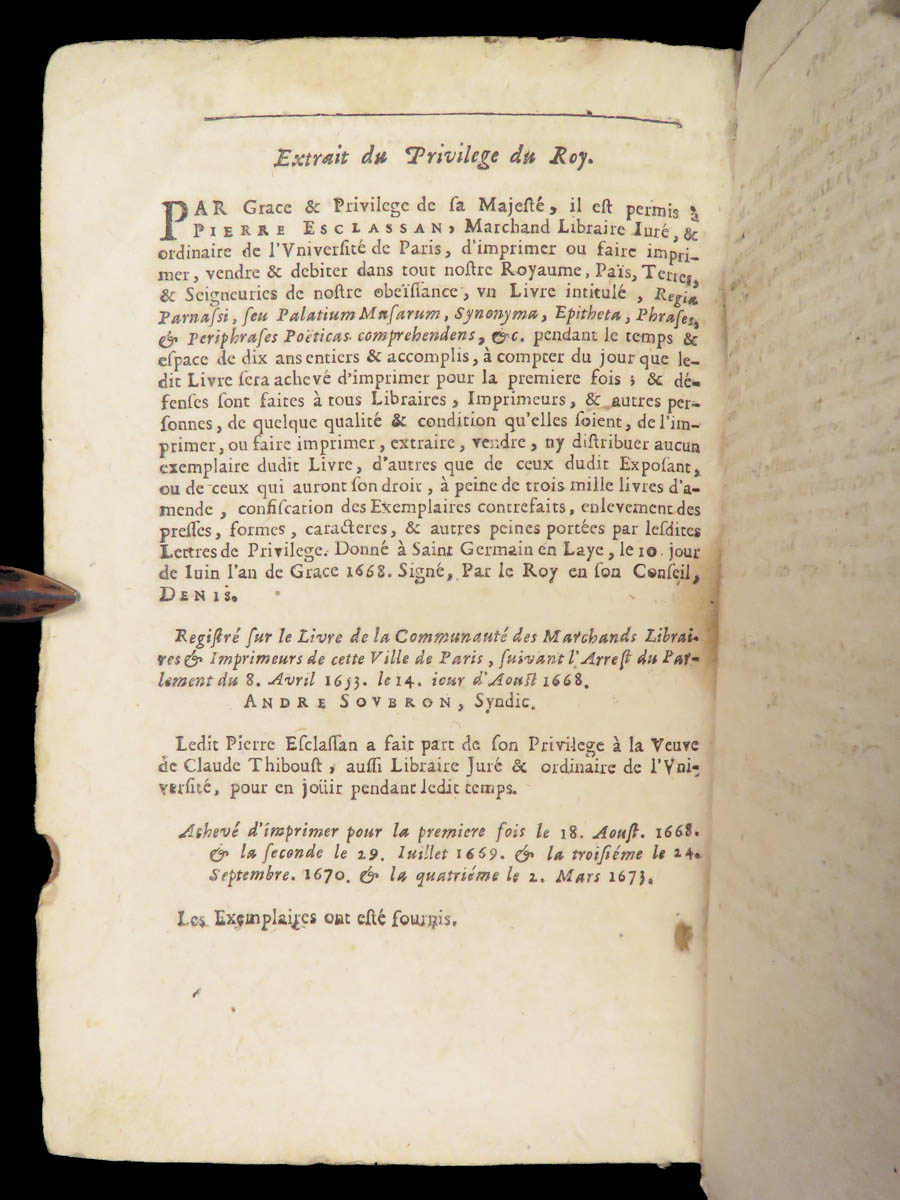 Extrait du Privilege du Roy.
PAR Grace & Privilege de ſa Majeſté, il eſt permis à
PIERRE ESCLASSAN, Marchand Libraire Iuré, &
ordinaire de l'Vniverſité de Paris, d'imprimer ou faire impri-
mer, vendre & debiter dans tout noſtre Royaume, Païs, Terres,
& Seigneuries de noſtre obeïſſance, vn Livre intitulé, Regia
Parnaſſi, ſeu Palatium Muſarum, Synonyma, Epitheta, Phraſes,
& Periphraſes Poëticas comprehendens, &c. pendant le temps &
eſpace de dix ans entiers & accomplis, à compter du jour que le-
dit Livre ſera achevé d'imprimer pour la premiere fois ; & dé-
fenſes ſont faites à tous Libraires, Imprimeurs, & autres per-
ſonnes, de quelque qualité & condition qu'elles ſoient, de l'im-
primer, ou faire imprimer, extraire, vendre, ny diſtribuer aucun
exemplaire dudit Livre, d'autres que de ceux dudit Expoſant,
ou de ceux qui auront ſon droit, à peine de trois mille livres d'a-
mende, confiſcation des Exemplaires contrefaits, enlevement des
preſſes, formes, caracteres, & autres peines portées par leſdites
Lettres de Privilege. Donné à Saint Germain en Laye, le 10. jour
de Iuin l'an de Grace 1668. Signé, Par le Roy en ſon Conſeil,
DENIS.
Regiſtré ſur le Livre de la Communauté des Marchands Librai-
res & Imprimeurs de cette Ville de Paris, ſuivant l'Arreſt du Par-
lement du 8. Avril 1653. le 14. iour d'Aouſt 1668.
ANDRE SOVBRON, Syndic.
Ledit Pierre Eſclaſſan a fait part de ſon Privilege à la Veuve
de Claude Thibouſt, auſſi Libraire Juré & ordinaire de l'Vni-
verſité, pour en joüir pendant ledit temps.
Achevé d'imprimer pour la premiere fois le 18. Aouſt. 1668.
& la ſeconde le 29. Iuillet 1669. & la troiſiéme le 24.
Septembre. 1670. & la quatriéme le 2. Mars 1673.
Les Exemplaires ont eſté fournis.